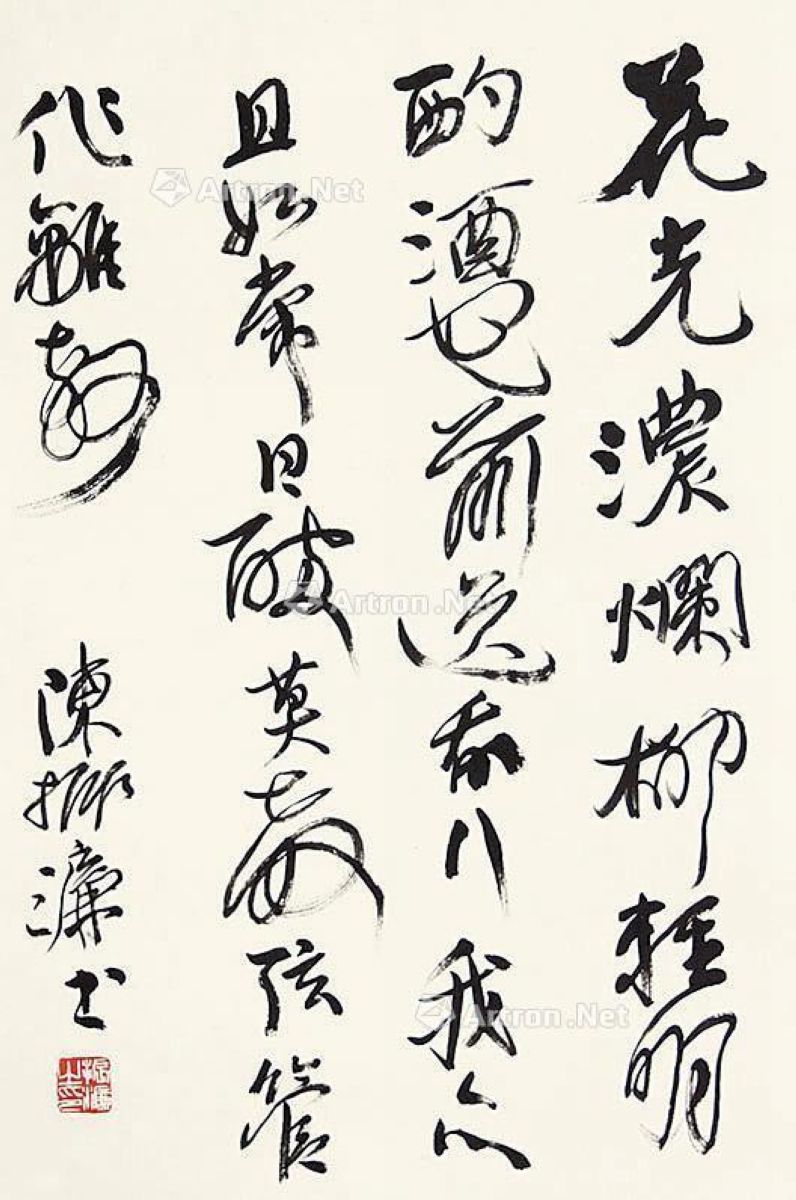 花光濃爛柳輕明
酌酒花前送我行我亦
且如常日醉莫教弦管
作離聲 陳振濂書
Artron.Net
Artron.Net
Artron.Net